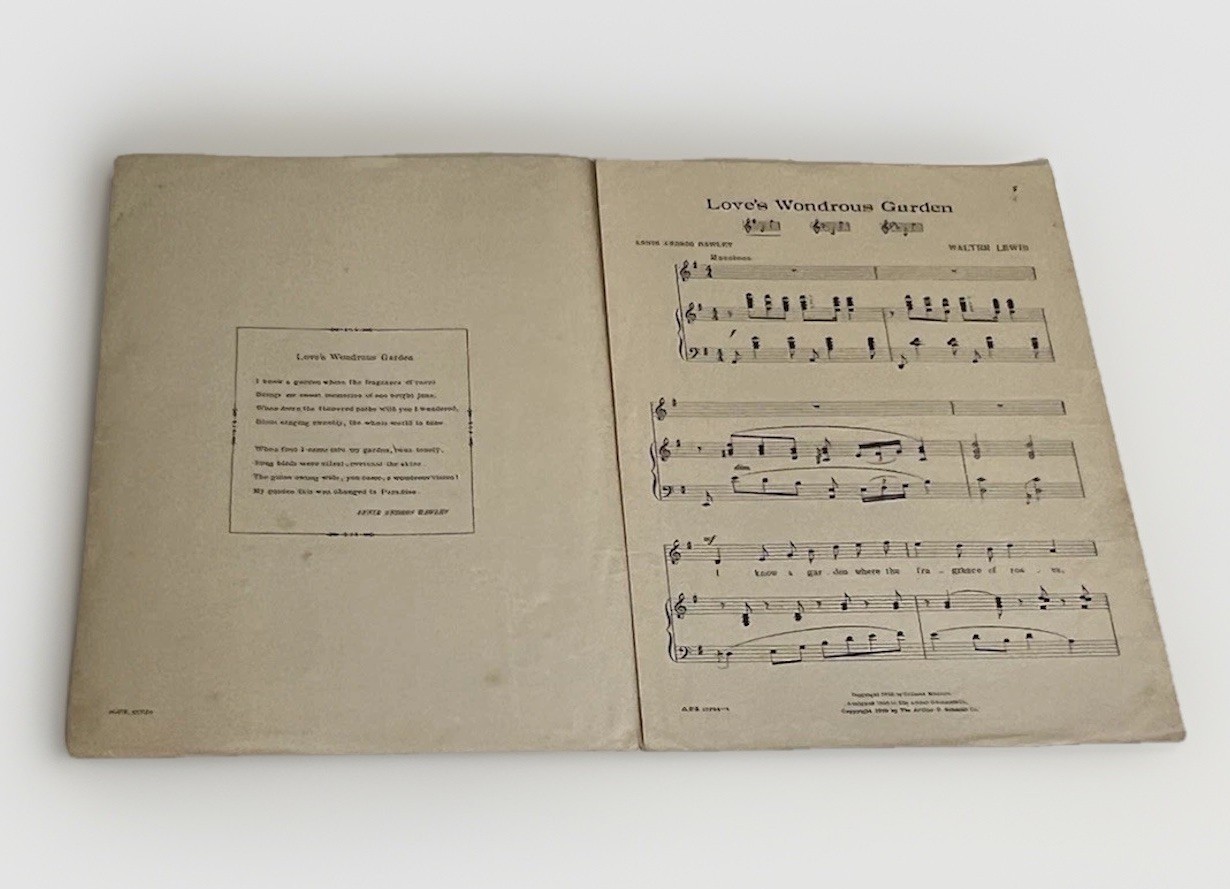 Love's Wondrous Garden
I know a garden where the fragrance of roses
Brings sweet memories of one bright June,
When down the flowered paths with you I wandered,
Birds singing sweetly, the whole world in tune.
When first I came into my garden, 'twas lonely,
birds were silent, overcast the skies
The gates swung wide, you came, a wondrous vision!
My garden this was changed to Paradise.
ANNIE ANDROS HAWLEY
Love's Wondrous Garden
ANNIE ANDROS HAWLEY
WALTER LEWIS
mf
I know a gar - den where the fra - grance of ros - es,
Copyright by
Assigned to The Arthur P. Schmidt Co.
Copyright by The Arthur P. Schmidt Co.